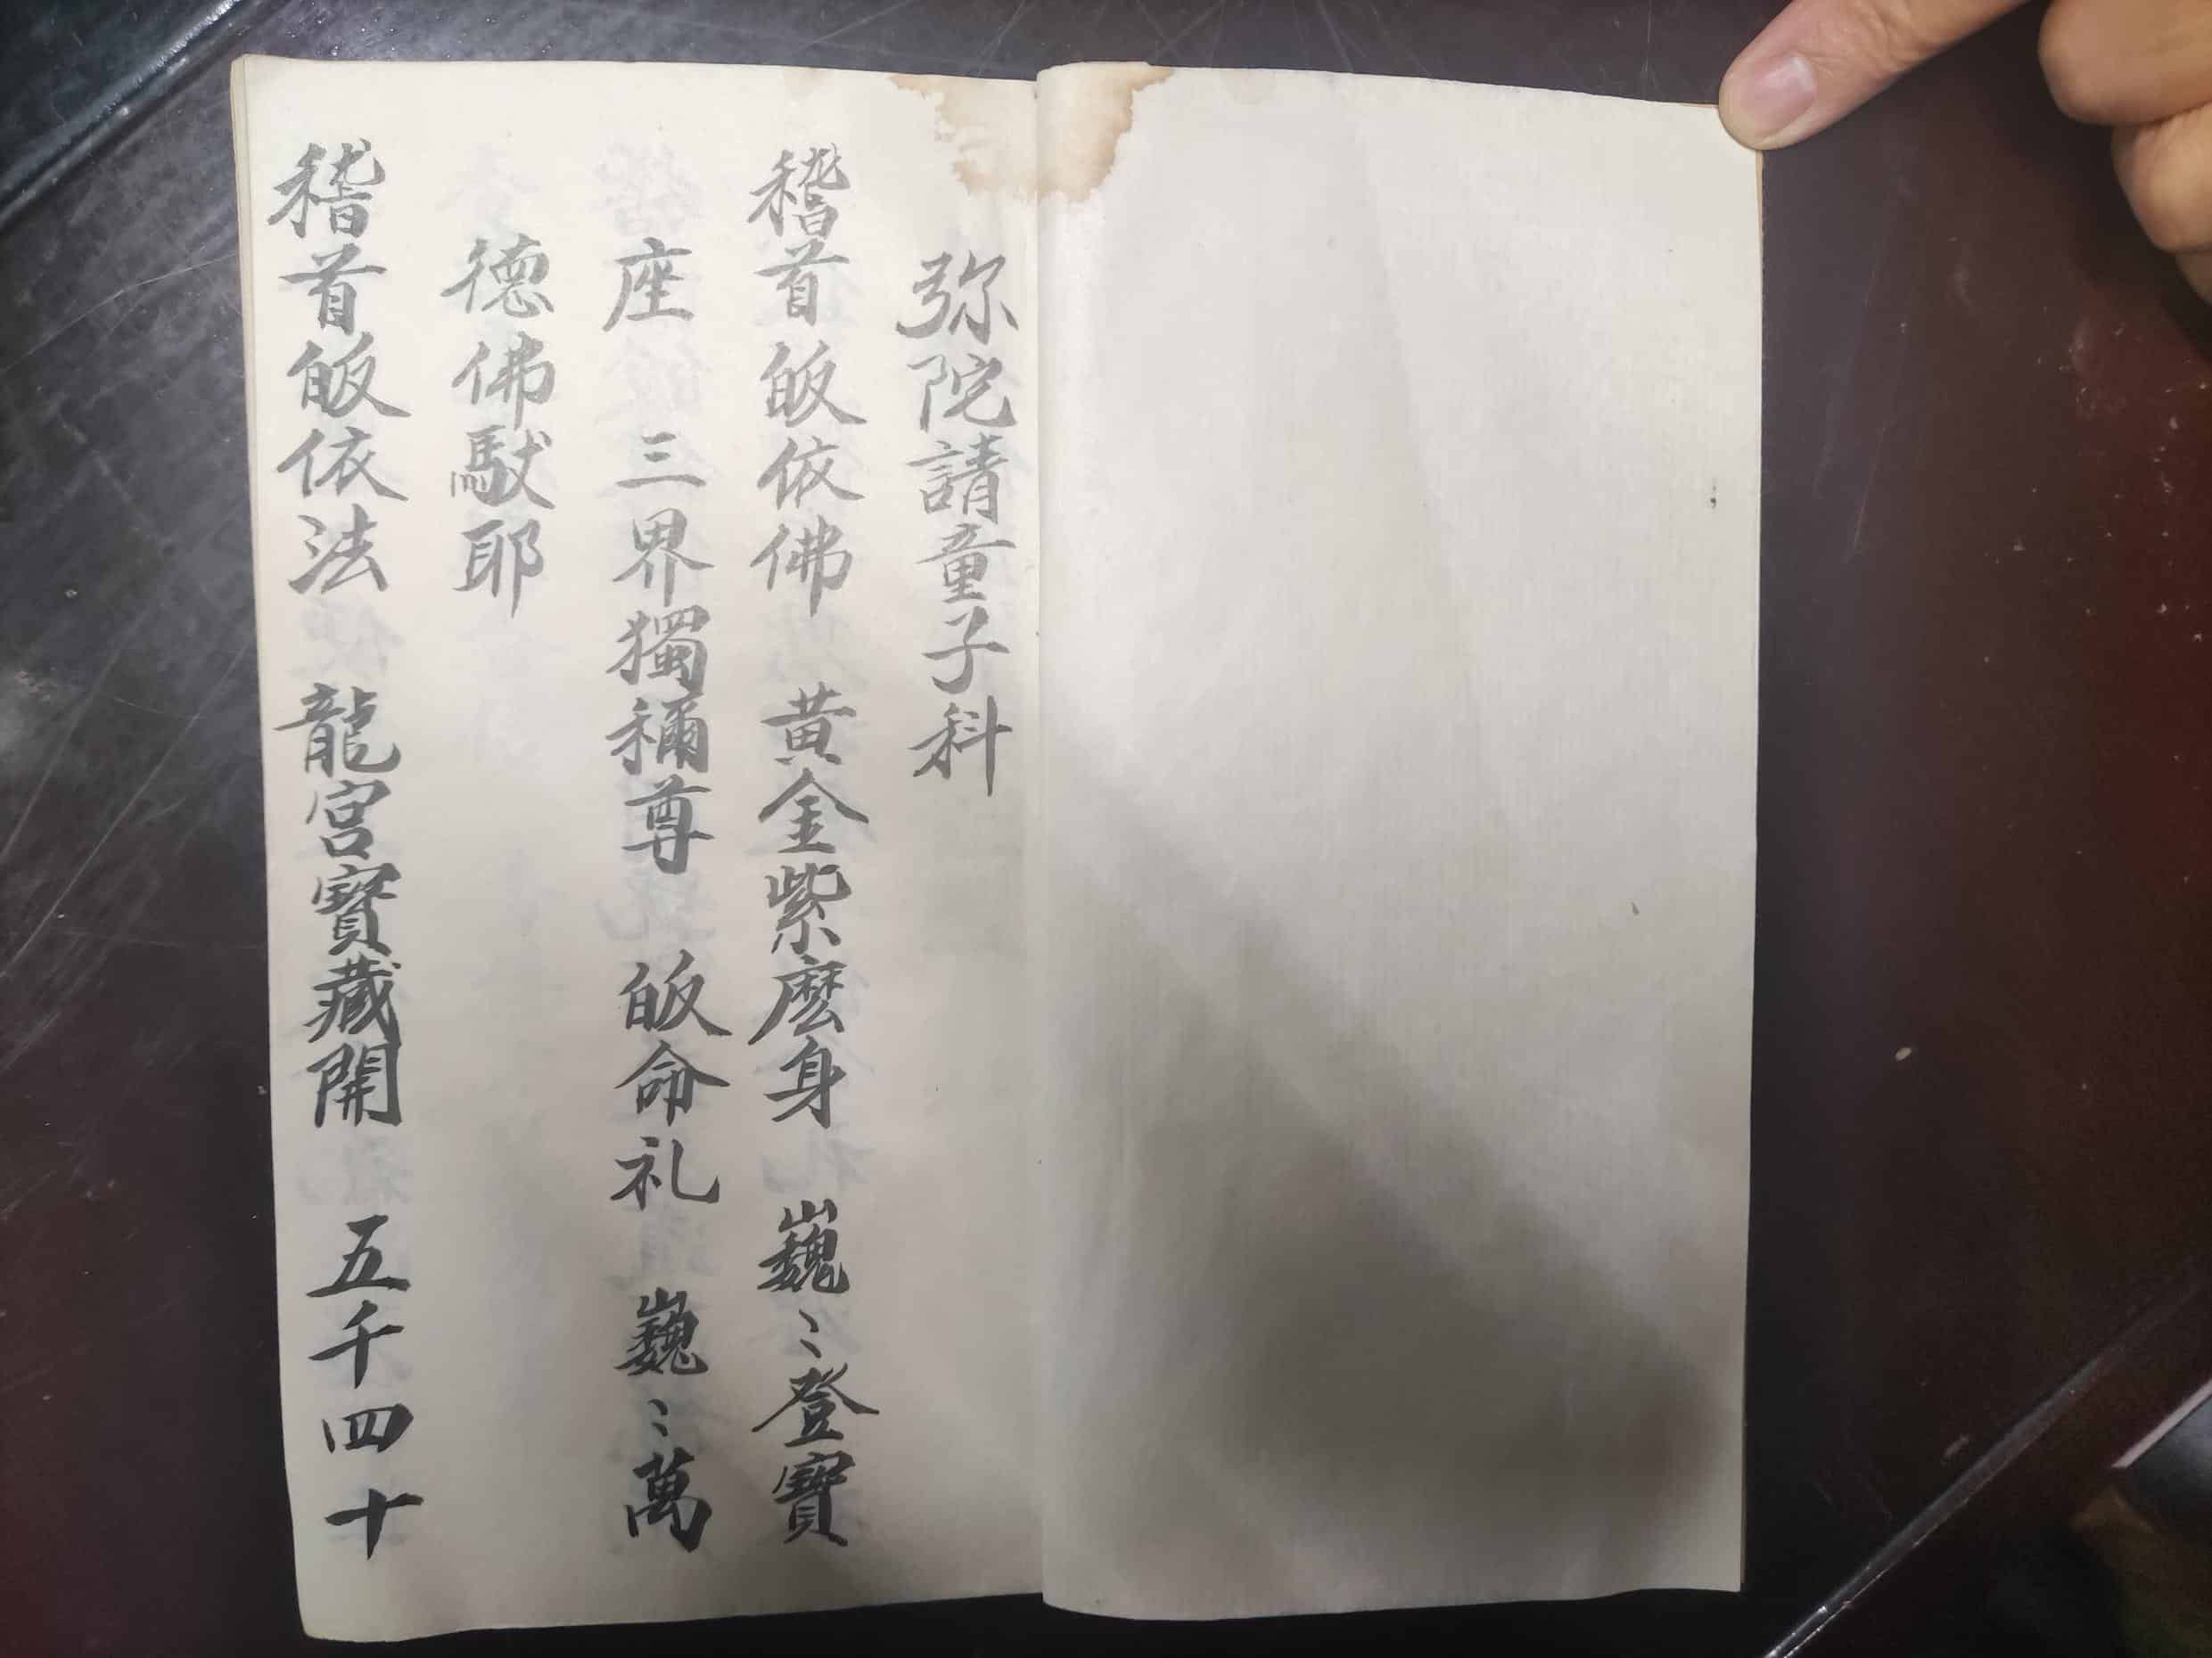 弥陀請童子科
稽首皈依佛 黄金紫麽身 巍〻登寳
座 三界獨稱尊 皈命礼 巍〻萬
德佛馱耶
稽首皈依法 龍宮寳藏開 五千四十